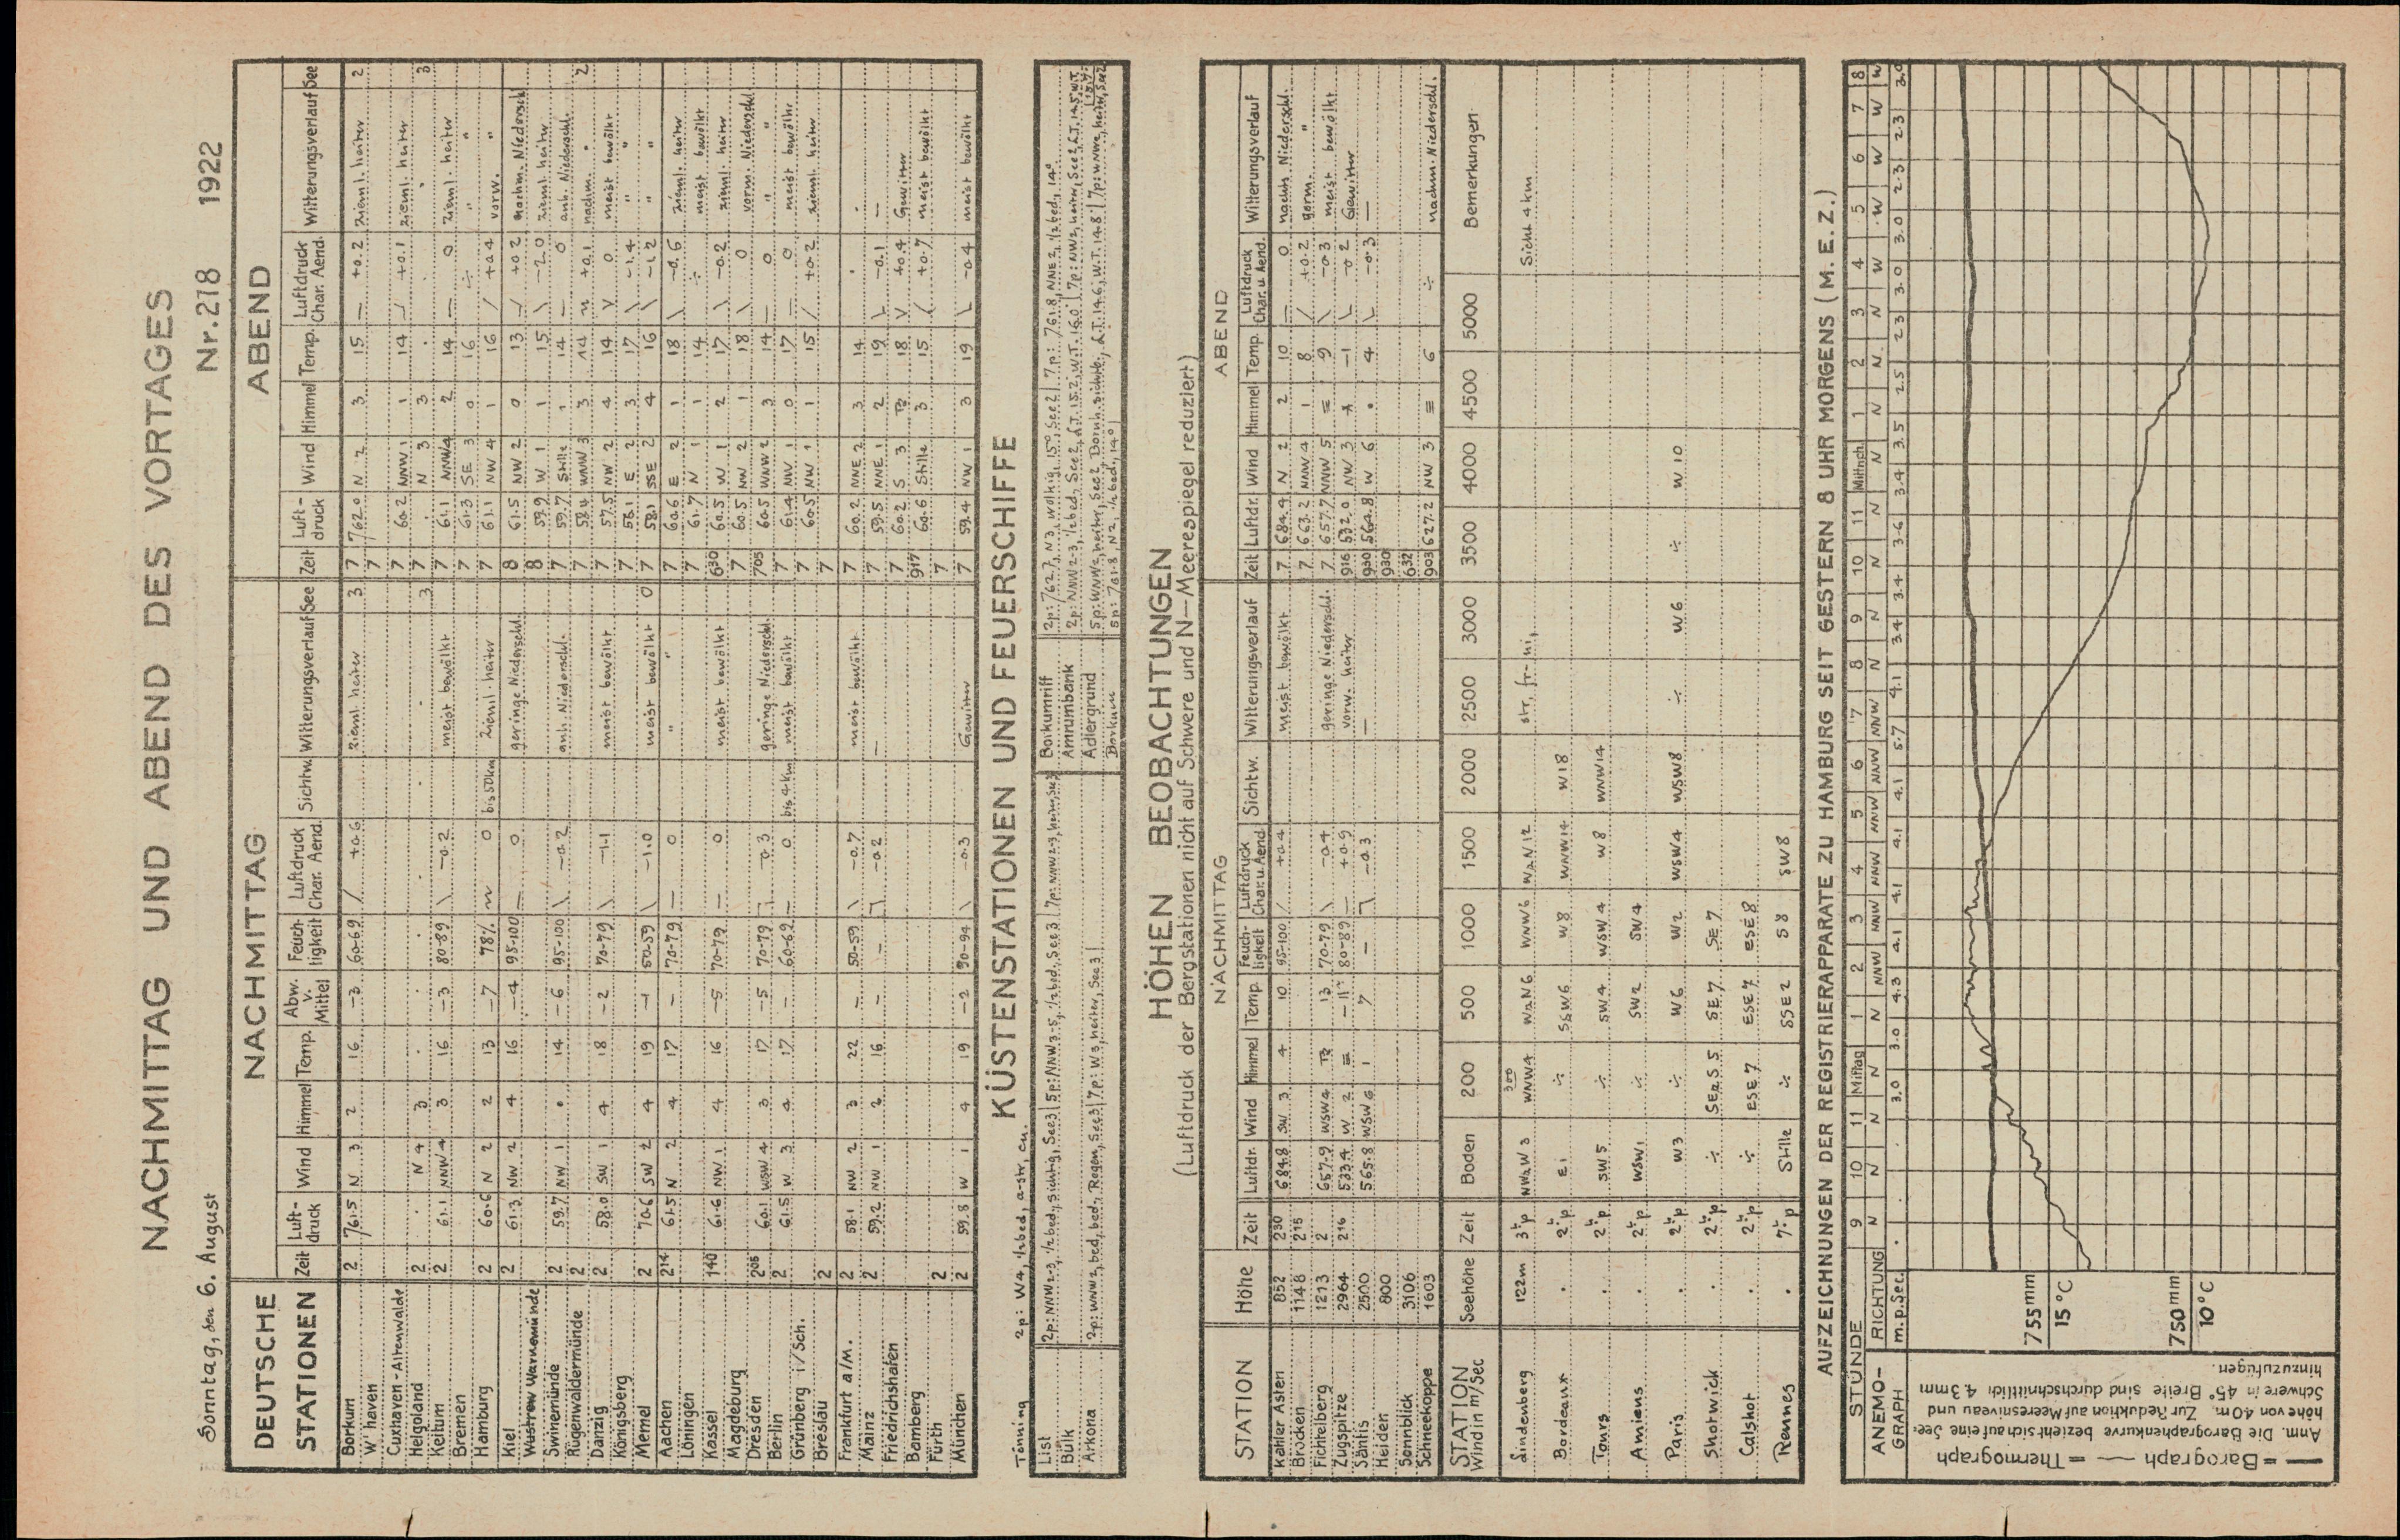 NACHMITTAG UND ABEND DES VORTAGES
Sonntag, den 6. August Nr. 218 1922
DEUTSCHE STATIONEN
NACHMITTAG
ABEND
Zeit Luft-druck Wind Himmel Temp. Abw. v. Mittel Feuch-tigkeit Luftdruck Char. Aend. Sichtw. Witterungsverlauf See
Zeit Luft-druck Wind Himmel Temp. Luftdruck Char. Aend. Witterungsverlauf See
Borkum 2 761.5 N 3 2 16 -3 60-69 / +0.6 zieml. heiter 3 7 762.0 N 2 3 15 = +0.2 ziemt. heiter 2
W'haven 7
Cuxhaven-Altenwalde 7 60.2 NNW 1 1 14 +0.1 zieml. heiter
Helgoland 2 . N 4 3 . . . . . . 3 7 . N 3 3 . . . 3
Keitum 2 61.1 NNW 4 3 16 -3 80-89 \ -0.2 meist bewölkt 7 61.1 NNW 4 2 14 = 0 zieml. heiter
Bremen 7 61.3 SE 3 0 16 ÷ " "
Hamburg 2 60.6 N 2 2 13 -7 78% ~ 0 bis 50km ziemt. heiter 7 61.1 NW 4 1 16 / +0.4 vorw. "
Kiel 2 61.3 NW 2 4 16 -4 95-100 = 0 geringe Niederschl. 8 61.5 NW 2 0 13 +0.2 nachm. Niedersch
Wustrow Warnemünde 8 59.9 W 1 1 15 \ -2.0 ziemt. heiter
Swinemünde 2 59.7 NW 1 • 14 -6 95-100 \ -0.2 anh. Niederschl. 7 59.7 Stille 1 14 0 anh. Niederschl.
Rügenwaldermünde 2 7 58.4 WNW 3 3 14 ~ +0.1 nachm. " 2
Danzig 2 58.0 SW 1 4 18 -2 70-79 \ -1.1 meist bewölkt 7 57.5 NW 2 4 14 V 0 meist bewölkt
Königsberg 7 E 2 3 17 \ -1.4 " "
Memel 2 SW 2 4 19 -1 50-59 \ -1.0 meist bewölkt 0 7 58.1 SSE 2 4 16 \ -1.2 " "
Aachen 214 61.5 N 2 4 17 - 70-79 = 0 " " 7 60.6 E 2 1 18 \ -0.6 ziemt. heiter
Löningen 7 61.7 N 1 1 14 ÷ meist bewölkt
Kassel 140 61.6 NW 1 4 16 -5 70-79 = 0 meist bewölkt 630 60.5 W 1 2 17 \ -0.2 ziemt. heiter
Magdeburg 7 60.5 NW 2 1 18 \ 0 vorm. Niederschl.
Dresden 205 60.1 WSW 4 3 17 -5 70-79 -0.3 geringe Niederschl. 705 60.5 WNW 2 3 14 0 " "
Berlin 2 61.5 W 3 4 17 - 60-69 = 0 bis 4km meist bewölkt 7 61.4 NW 1 0 17 = 0 meist bewölkt
Grünberg i/Sch. 7 60.5 NW 1 1 15 / +0.2 ziemt. heiter
Breslau 2 7
Frankfurt a/M. 2 58.1 NW 2 3 22 - 50-59 \ -0.7 meist bewölkt 7 60.2 NNE 2 3 14 . .
Mainz 2 59.2 NW 1 2 16 - - -0.2 — 7 59.5 NNE 1 2 19 -0.1 —
Friedrichshafen 7 60.2 S 3 18 V +0.4 Gewitter
Bamberg 917 60.6 Stille 3 15 +0.7 meist bewölkt
Fürth 2 7
München 2 59.8 W 1 4 19 -2 90-94 \ -0.3 Gewitter 7 59.4 NW 1 3 19 -0.4 meist bewölkt
KÜSTENSTATIONEN UND FEUERSCHIFFE
Tönning 2p: W4, ½ bed, a-str, cu.
List 2p: NNW2-3, ½ bed, sichtig, See3 | 5p: NNW3-5, ½ bed, See3 | 7p: NNW2-3, heiter, See3
Bülk
Arkona 2p: WNW2, bed, bed., Regen, See3 | 7p: W3, heiter, See3 |
Borkumriff 2p: 762.7, N3, wolkig, 15°, See2 | 7p: 761.8, NNE2, ½ bed, 14°
Amrumbank 2p: NNW2-3, ½ bed, See2, L.T. 15.2, W.T. 16.0 | 7p: NW2, heiter, See2, L.T. 14.5, W.T.
Adlergrund 5p: WNW2, heiter, See2 L.T. 14.6, W.T. 14.8 | 7p: WNW2, heiter, See2
Borkum 5p: 761.8, N2, ½ bed, 14° |
HÖHEN BEOBACHTUNGEN
(Luftdruck der Bergstationen nicht auf Schwere und N—Meerespiegel reduziert)
NACHMITTAG
ABEND
STATION Höhe Zeit Luftdr. Wind Himmel Temp. Feuch-tigkeit Luftdruck Char. u. Aend. Sichtw. Witterungsverlauf Zeit Luftdr. Wind Himmel Temp. Luftdruck Char. u. Aend. Witterungsverlauf
Kahler Asten 852 230 684.8 SW 3 4 10 95-100 / +0.4 meist bewölkt 7 684.9 N 2 2 10 = 0 nachts Niederschl.
Brocken 1148 215 7 663.2 NNW 4 1 8 / +0.2 vorm. "
Fichtelberg 1213 2 657.9 WSW 4 13 70-79 \ -0.4 geringe Niederschl. 7 657.7 NNW 5 ≡ 9 \ -0.3 meist bewölkt
Zugspitze 2964 216 533.4 W 2 ≡ 80-89 = +0.9 vorw. heiter 916 532.0 NW 3 * -1 -0.2 Gewitter
Säntis 2500 565.8 WSW 6 1 7 — -0.3 — 930 564.8 W 6 • 4 -0.3 —
Heiden 800 930
Sonnblick 3106 632
Schneekoppe 1603 903 627.2 NW 3 ≡ 6 ÷ nachm. Niederschl.
STATION Wind in m/Sec Seehöhe Zeit Boden 200 500 1000 1500 2000 2500 3000 3500 4000 4500 5000 Bemerkungen
Lindenberg 122m 3h p NWzW 3 300 WNW4 WzN6 WNW6 WzN12 str., fr-ni, Sicht 4 km
Bordeaux . 2h p E1 ÷ SSW6 W8 WNW14 W18
Tours . 2h p SW5 ÷ SW4 WSW4 W8 WNW14
Amiens . 2h p WSW1 ÷ SW2 SW4
Paris . 2h p W3 ÷ W6 W2 WSW4 WSW8 ÷ W6 ÷ W10
Shotwick . 2h p ÷ SEzS5 SE7 SE7
Calshot . 2h p ÷ ESE7 ESE7 ESE8
Rennes . 7h p Stille ÷ SSE2 S8 SW8
AUFZEICHNUNGEN DER REGISTRIERAPPARATE ZU HAMBURG SEIT GESTERN 8 UHR MORGENS (M.E.Z.)
STUNDE 9 10 11 Mittag 1 2 3 4 5 6 7 8 9 10 11 Mittnch. 1 2 3 4 5 6 7 8
ANEMO-GRAPH
RICHTUNG N N N N N NNW NNW NNW NNW NNW NNW N N N N N N N N W W W W W
m.p.Sec. . . . 3.0 3.0 4.3 4.1 4.1 4.1 4.1 5.7 4.1 3.4 3.4 3.6 3.4 3.5 2.5 2.3 3.0 3.0 2.3 2.3 3.0
755 mm
15°C
750 mm
10°C
— = Barograph — = Thermograph
Anm. Die Barographenkurve bezieht sich auf eine See-
höhe von 40m. Zur Reduktion auf Meeresniveau und
Schwere in 45° Breite sind durchschnittlich 4.3mm
hinzuzufügen.